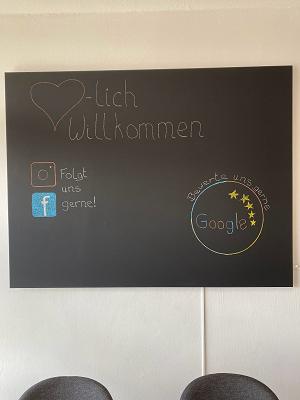 -lich
Willkommen
Folgt
uns
gerne!
f
Bewerte uns gerne
Google